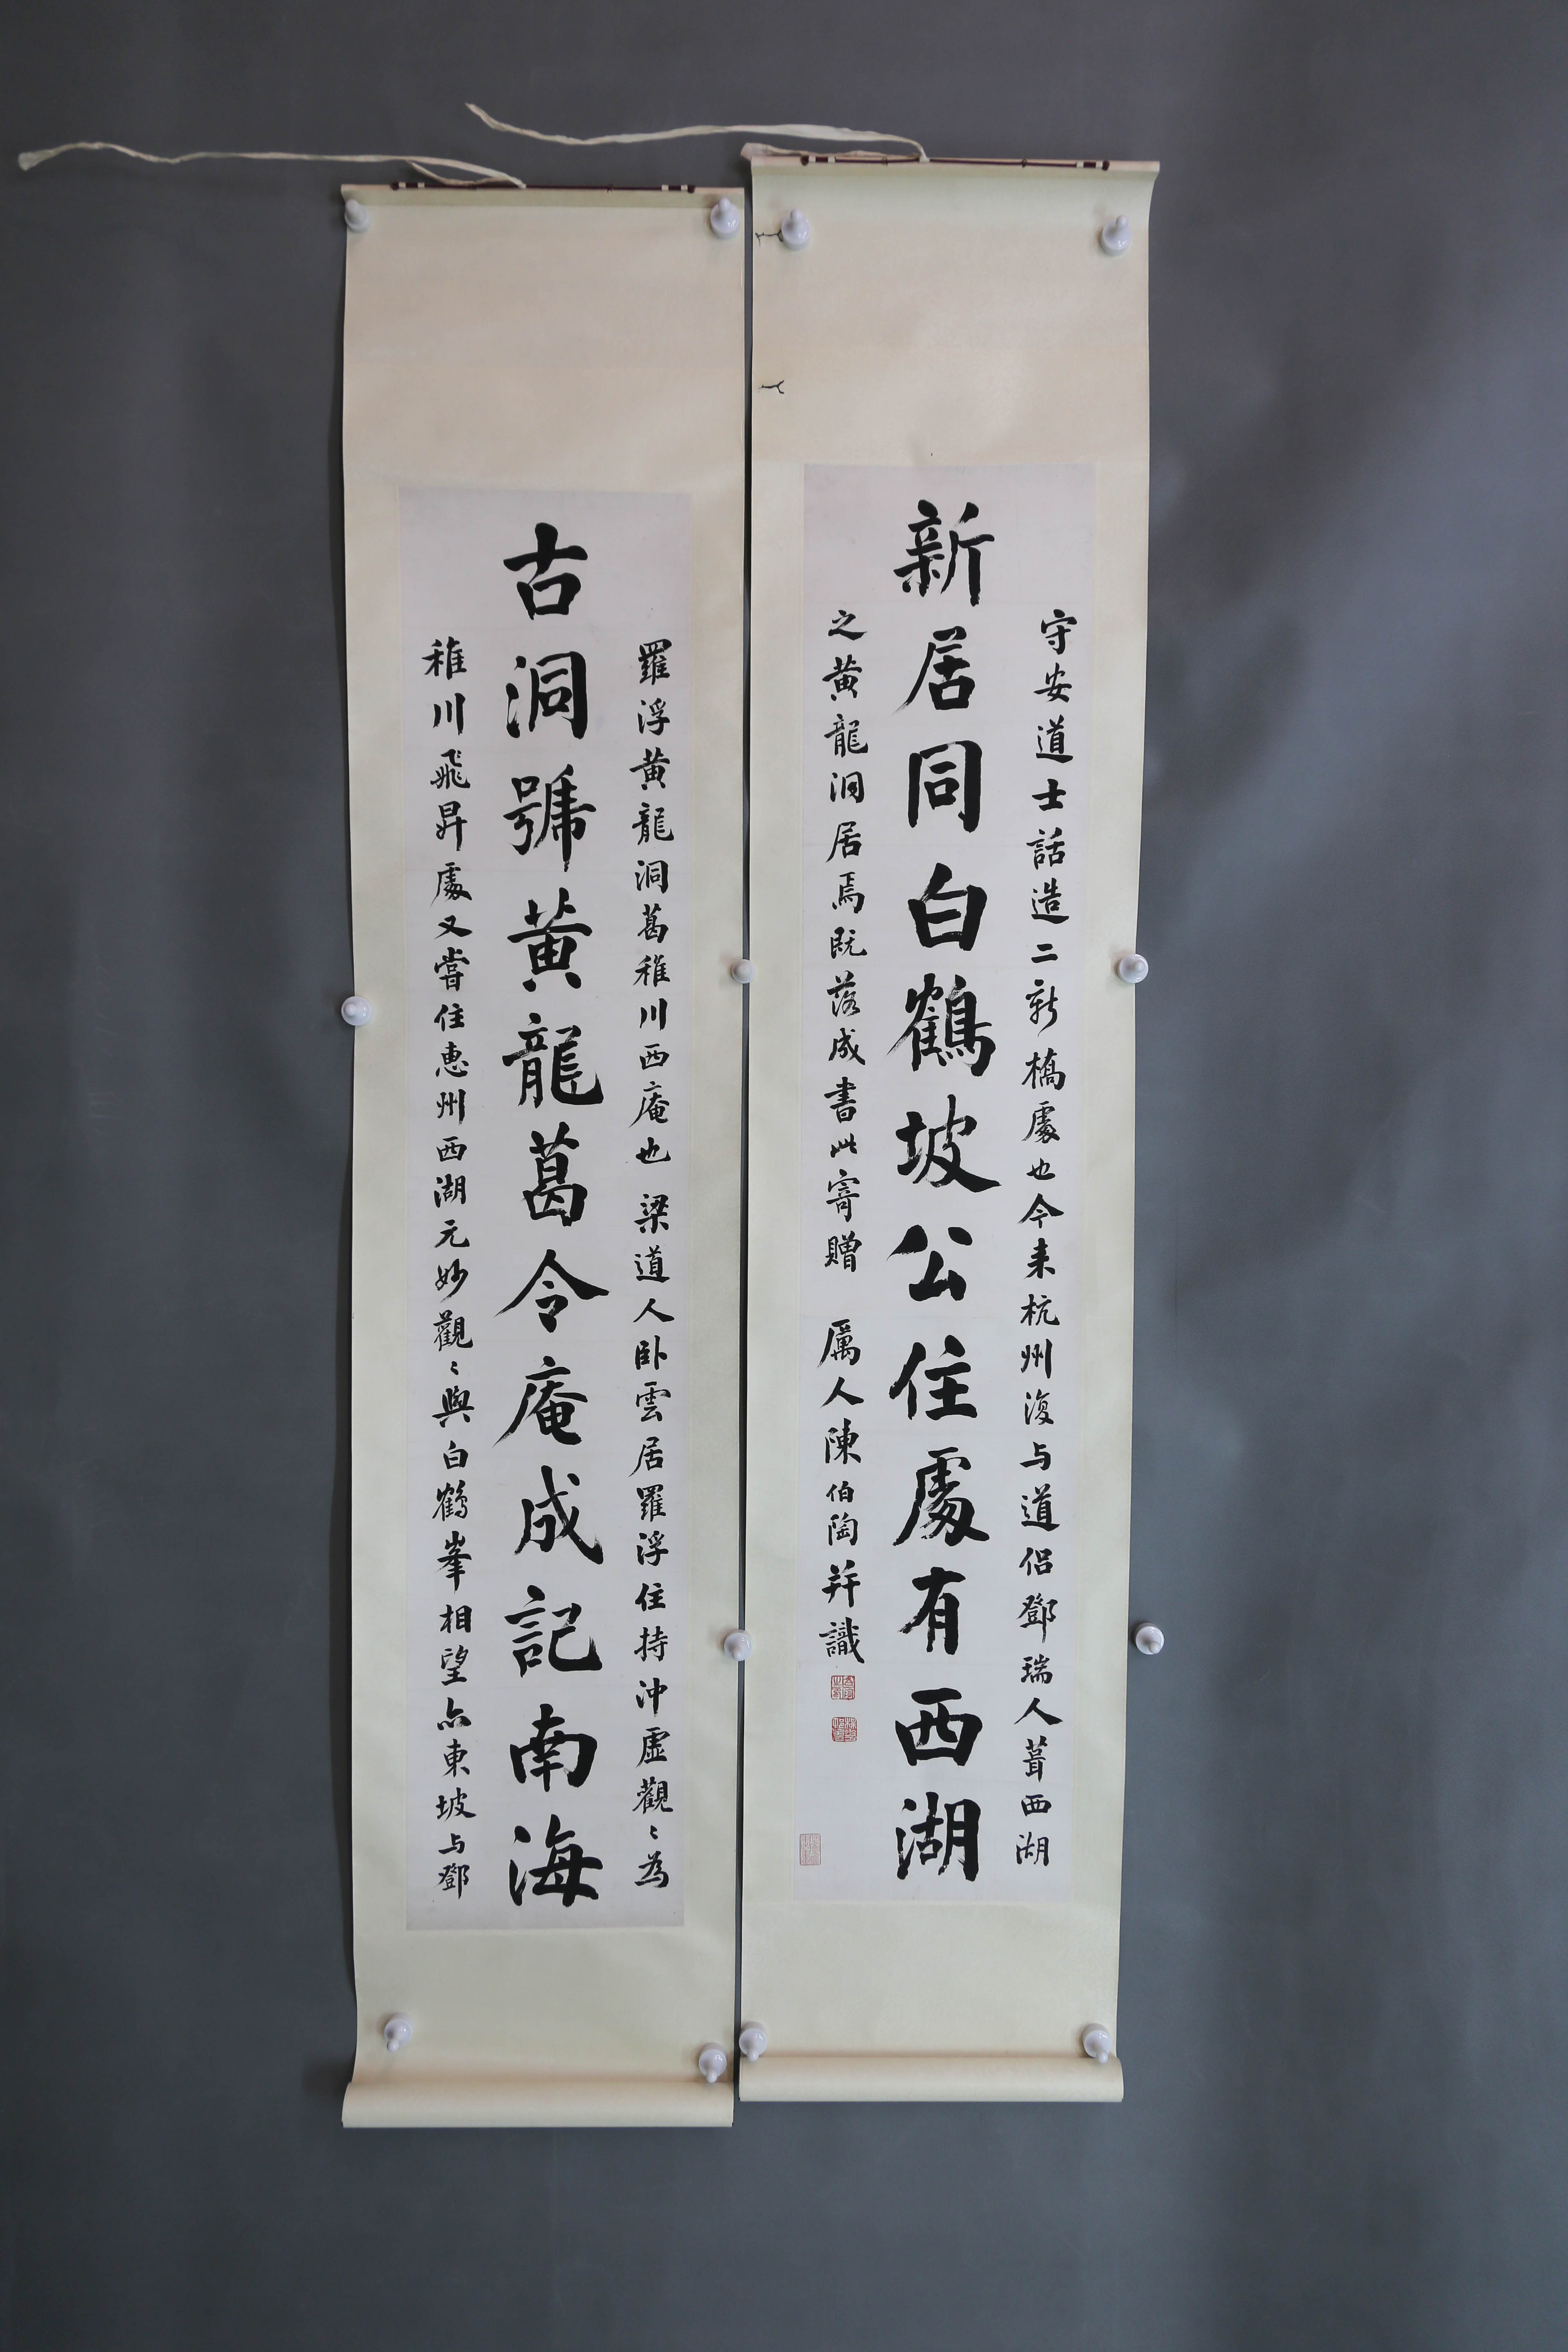 羅浮黄龍洞葛稚川西庵也 梁道人卧雲居羅浮住持沖虛觀〻為
古洞號黄龍葛令庵成記南海
稚川飛昇處又嘗住惠州西湖元妙觀〻與白鶴峯相望亦東坡与鄧
守安道士話造二新橋處也今来杭州復与道侣鄧瑞人葺西湖
新居同白鶴坡公住處有西湖
之黄龍洞居焉既落成書此寄贈 厲人陳伯陶并識